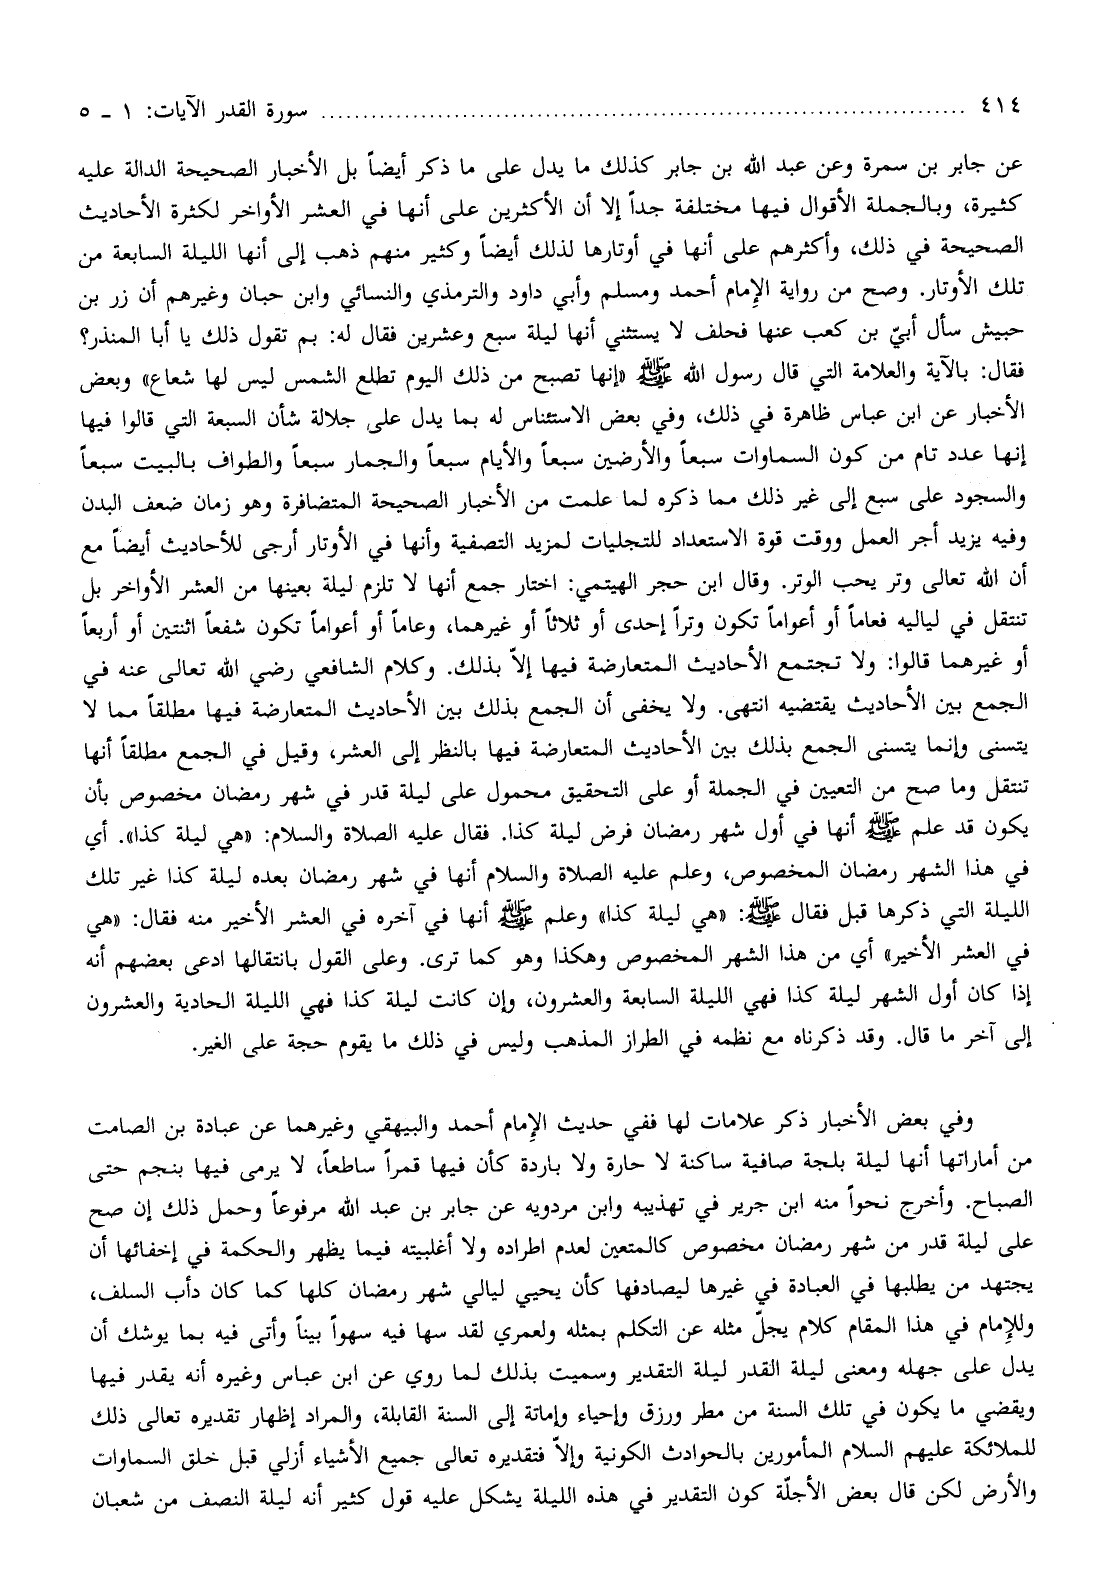 ٤١٤ ........................................................ سورة القدر الآيات: ١ ـ ٥
عن جابر بن سمرة وعن عبد الله بن جابر كذلك ما يدل على ما ذكر أيضاً بل الأخبار الصحيحة الدالة عليه
كثيرة، وبالجملة الأقوال فيها مختلفة جداً إلا أن الأكثرين على أنها في العشر الأواخر لكثرة الأحاديث
الصحيحة في ذلك، وأكثرهم على أنها في أوتارها لذلك أيضاً وكثير منهم ذهب إلى أنها الليلة السابعة من
تلك الأوتار. وصح من رواية الإمام أحمد ومسلم وأبي داود والترمذي والنسائي وابن حبان وغيرهم أن زر بن
حبيش سأل أبيّ بن كعب عنها فحلف لا يستثني أنها ليلة سبع وعشرين فقال له: بم تقول ذلك يا أبا المنذر؟
فقال: بالآية والعلامة التي قال رسول الله ﷺ «إنها تصبح من ذلك اليوم تطلع الشمس ليس لها شعاع» وبعض
الأخبار عن ابن عباس ظاهرة في ذلك، وفي بعض الاستئناس له بما يدل على جلالة شأن السبعة التي قالوا فيها
إنها عدد تام من كون السماوات سبعاً والأرضين سبعاً والأيام سبعاً والجمار سبعاً والطواف بالبيت سبعاً
والسجود على سبع إلى غير ذلك مما ذكره لما علمت من الأخبار الصحيحة المتضافرة وهو زمان ضعف البدن
وفيه يزيد أجر العمل ووقت قوة الاستعداد للتجليات لمزيد التصفية وأنها في الأوتار أرجى للأحاديث أيضاً مع
أن الله تعالى وتر يحب الوتر. وقال ابن حجر الهيتمي: اختار جمع أنها لا تلزم ليلة بعينها من العشر الأواخر بل
تنتقل في لياليه فعاماً أو أعواماً تكون وتراً إحدى أو ثلاثاً أو غيرهما، وعاماً أو أعواماً تكون شفعاً اثنتين أو أربعاً
أو غيرهما قالوا: ولا تجتمع الأحاديث المتعارضة فيها إلاّ بذلك. وكلام الشافعي رضي الله تعالى عنه في
الجمع بين الأحاديث يقتضيه انتهى. ولا يخفى أن الجمع بذلك بين الأحاديث المتعارضة فيها مطلقاً مما لا
يتسنى وإنما يتسنى الجمع بذلك بين الأحاديث المتعارضة فيها بالنظر إلى العشر، وقيل في الجمع مطلقاً أنها
تنتقل وما صح من التعيين في الجملة أو على التحقيق محمول على ليلة قدر في شهر رمضان مخصوص بأن
يكون قد علم ﷺ أنها في أول شهر رمضان فرض ليلة كذا. فقال عليه الصلاة والسلام: «هي ليلة كذا». أي
في هذا الشهر رمضان المخصوص، وعلم عليه الصلاة والسلام أنها في شهر رمضان بعده ليلة كذا غير تلك
الليلة التي ذكرها قبل فقال ﷺ: «هي ليلة كذا» وعلم ﷺ أنها في آخره في العشر الأخير منه فقال: «هي
في العشر الأخير» أي من هذا الشهر المخصوص وهكذا وهو كما ترى. وعلى القول بانتقالها ادعى بعضهم أنه
إذا كان أول الشهر ليلة كذا فهي الليلة السابعة والعشرون، وإن كانت ليلة كذا فهي الليلة الحادية والعشرون
إلى آخر ما قال. وقد ذكرناه مع نظمه في الطراز المذهب وليس في ذلك ما يقوم حجة على الغير.
وفي بعض الأخبار ذكر علامات لها ففي حديث الإمام أحمد والبيهقي وغيرهما عن عبادة بن الصامت
من أماراتها أنها ليلة بلجة صافية ساكنة لا حارة ولا باردة كأن فيها قمراً ساطعاً، لا يرمى فيها بنجم حتى
الصباح. وأخرج نحواً منه ابن جرير في تهذيبه وابن مردويه عن جابر بن عبد الله مرفوعاً وحمل ذلك إن صح
على ليلة قدر من شهر رمضان مخصوص كالمتعين لعدم اطراده ولا أغلبيته فيما يظهر والحكمة في إخفائها أن
يجتهد من يطلبها في العبادة في غيرها ليصادفها كأن يحيي ليالي شهر رمضان كلها كما كان دأب السلف،
وللإمام في هذا المقام كلام يجلّ مثله عن التكلم بمثله ولعمري لقد سها فيه سهواً بيناً وأتى فيه بما يوشك أن
يدل على جهله ومعنى ليلة القدر ليلة التقدير وسميت بذلك لما روي عن ابن عباس وغيره أنه يقدر فيها
ويقضي ما يكون في تلك السنة من مطر ورزق وإحياء وإماتة إلى السنة القابلة، والمراد إظهار تقديره تعالى ذلك
للملائكة عليهم السلام المأمورين بالحوادث الكونية وإلاّ فتقديره تعالى جميع الأشياء أزلي قبل خلق السماوات
والأرض لكن قال بعض الأجلّة كون التقدير في هذه الليلة يشكل عليه قول كثير أنه ليلة النصف من شعبان